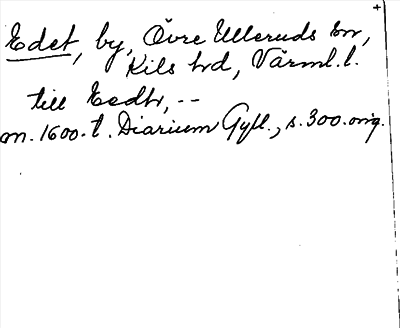 Edet, by, Övre Ulleruds sn,
Kils hd, Värml. l.
till Eedh, --
m. 1600. t. Diarium Gyll., s. 300. orig.